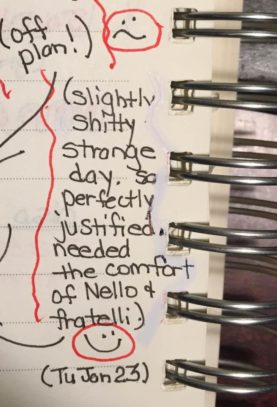 (off
plan!)
(slightly
shitty
strange
day. so
perfectly
justified.
needed
the comfort
of Nello &
fratelli)
(Tu Jan 23)